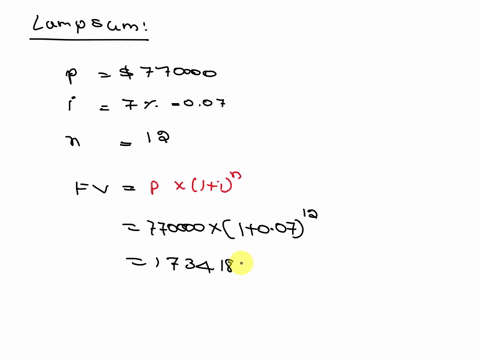 Lampsum:
P = $770000
i = 7% = 0.07
n = 12
FV = P × (1+i)^n
= 770000 × (1+0.07)^12
= 173418